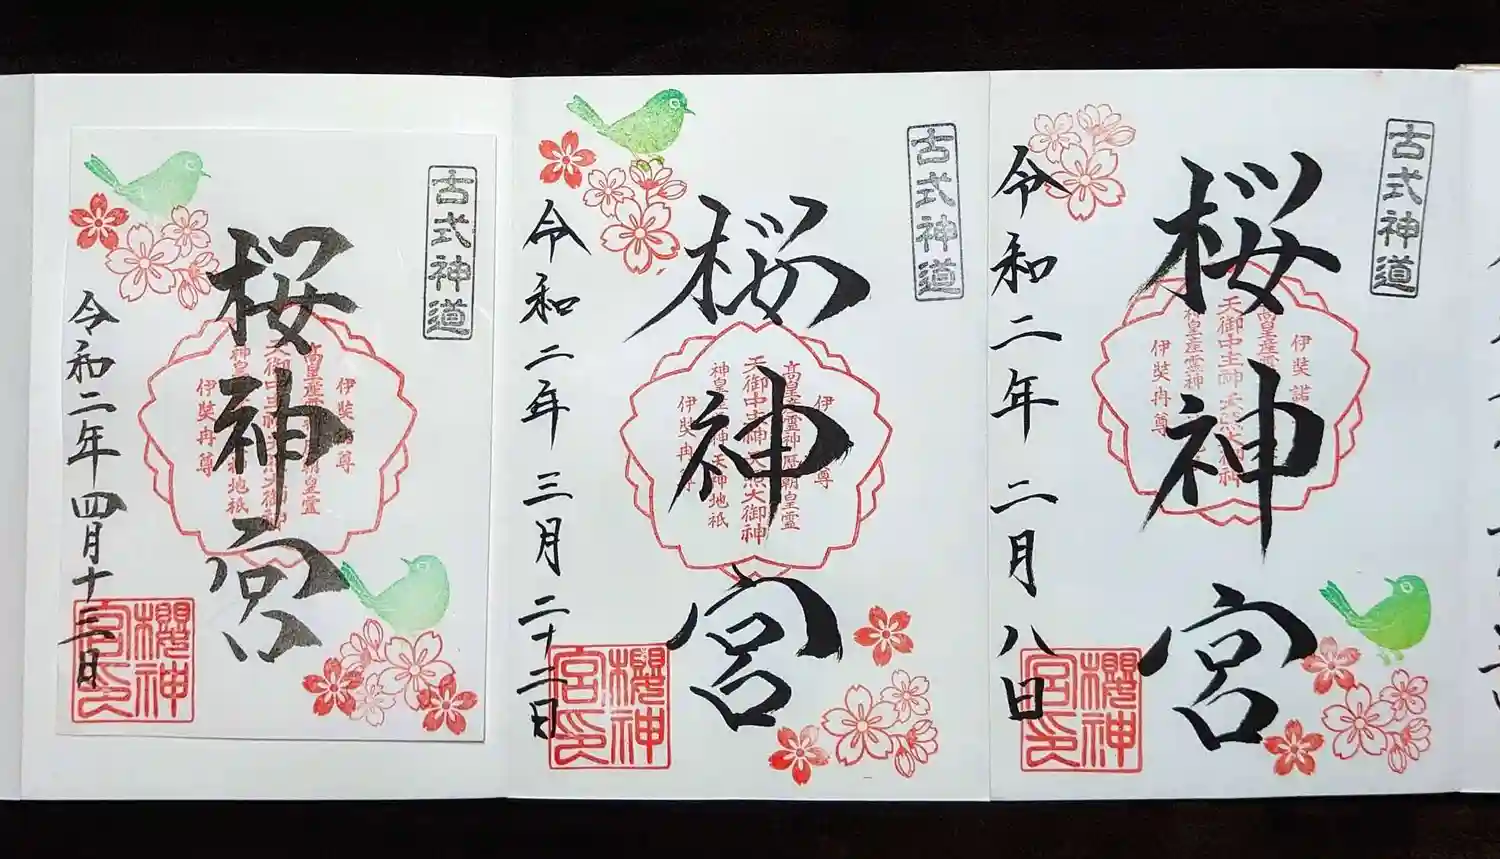 古式神道
桜神宮
高皇産靈神
伊弉諾尊
天御中主神天照大御神
神皇産靈神
伊弉冉尊
令和二年二月八日
櫻神宮印
古式神道
桜神宮
高皇産靈神歴朝皇靈
天御中主神天照大御神
神皇産靈神天神地祇
伊弉冉尊
令和二年三月二十二日
櫻神宮印
古式神道
桜神宮
伊弉諾尊
天御中主神天照大御神
伊弉冉尊
令和二年四月十三日
櫻神宮印